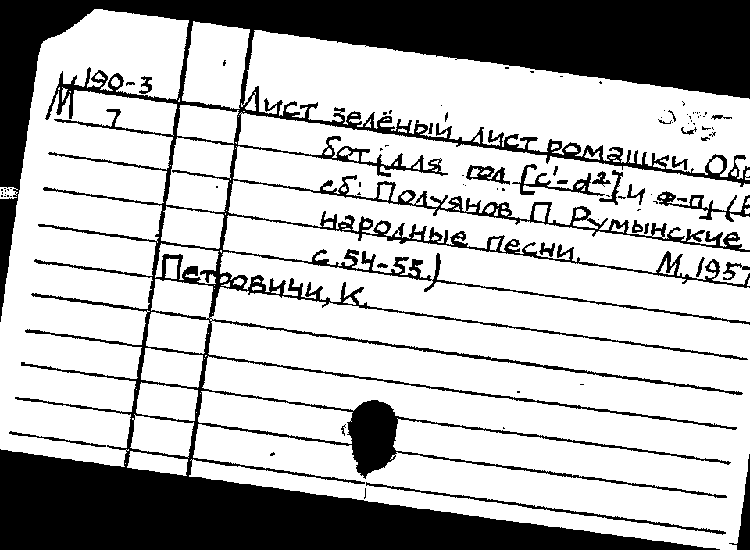 М 190-3
7
Лист зелёный, лист ромашки. Обр
бот. [для гол. [c'-d²] и ф-п.] (В
сб: Полуянов, П. Румынские
народные песни. М., 1957
с. 54-55.)
Петровичи, К.